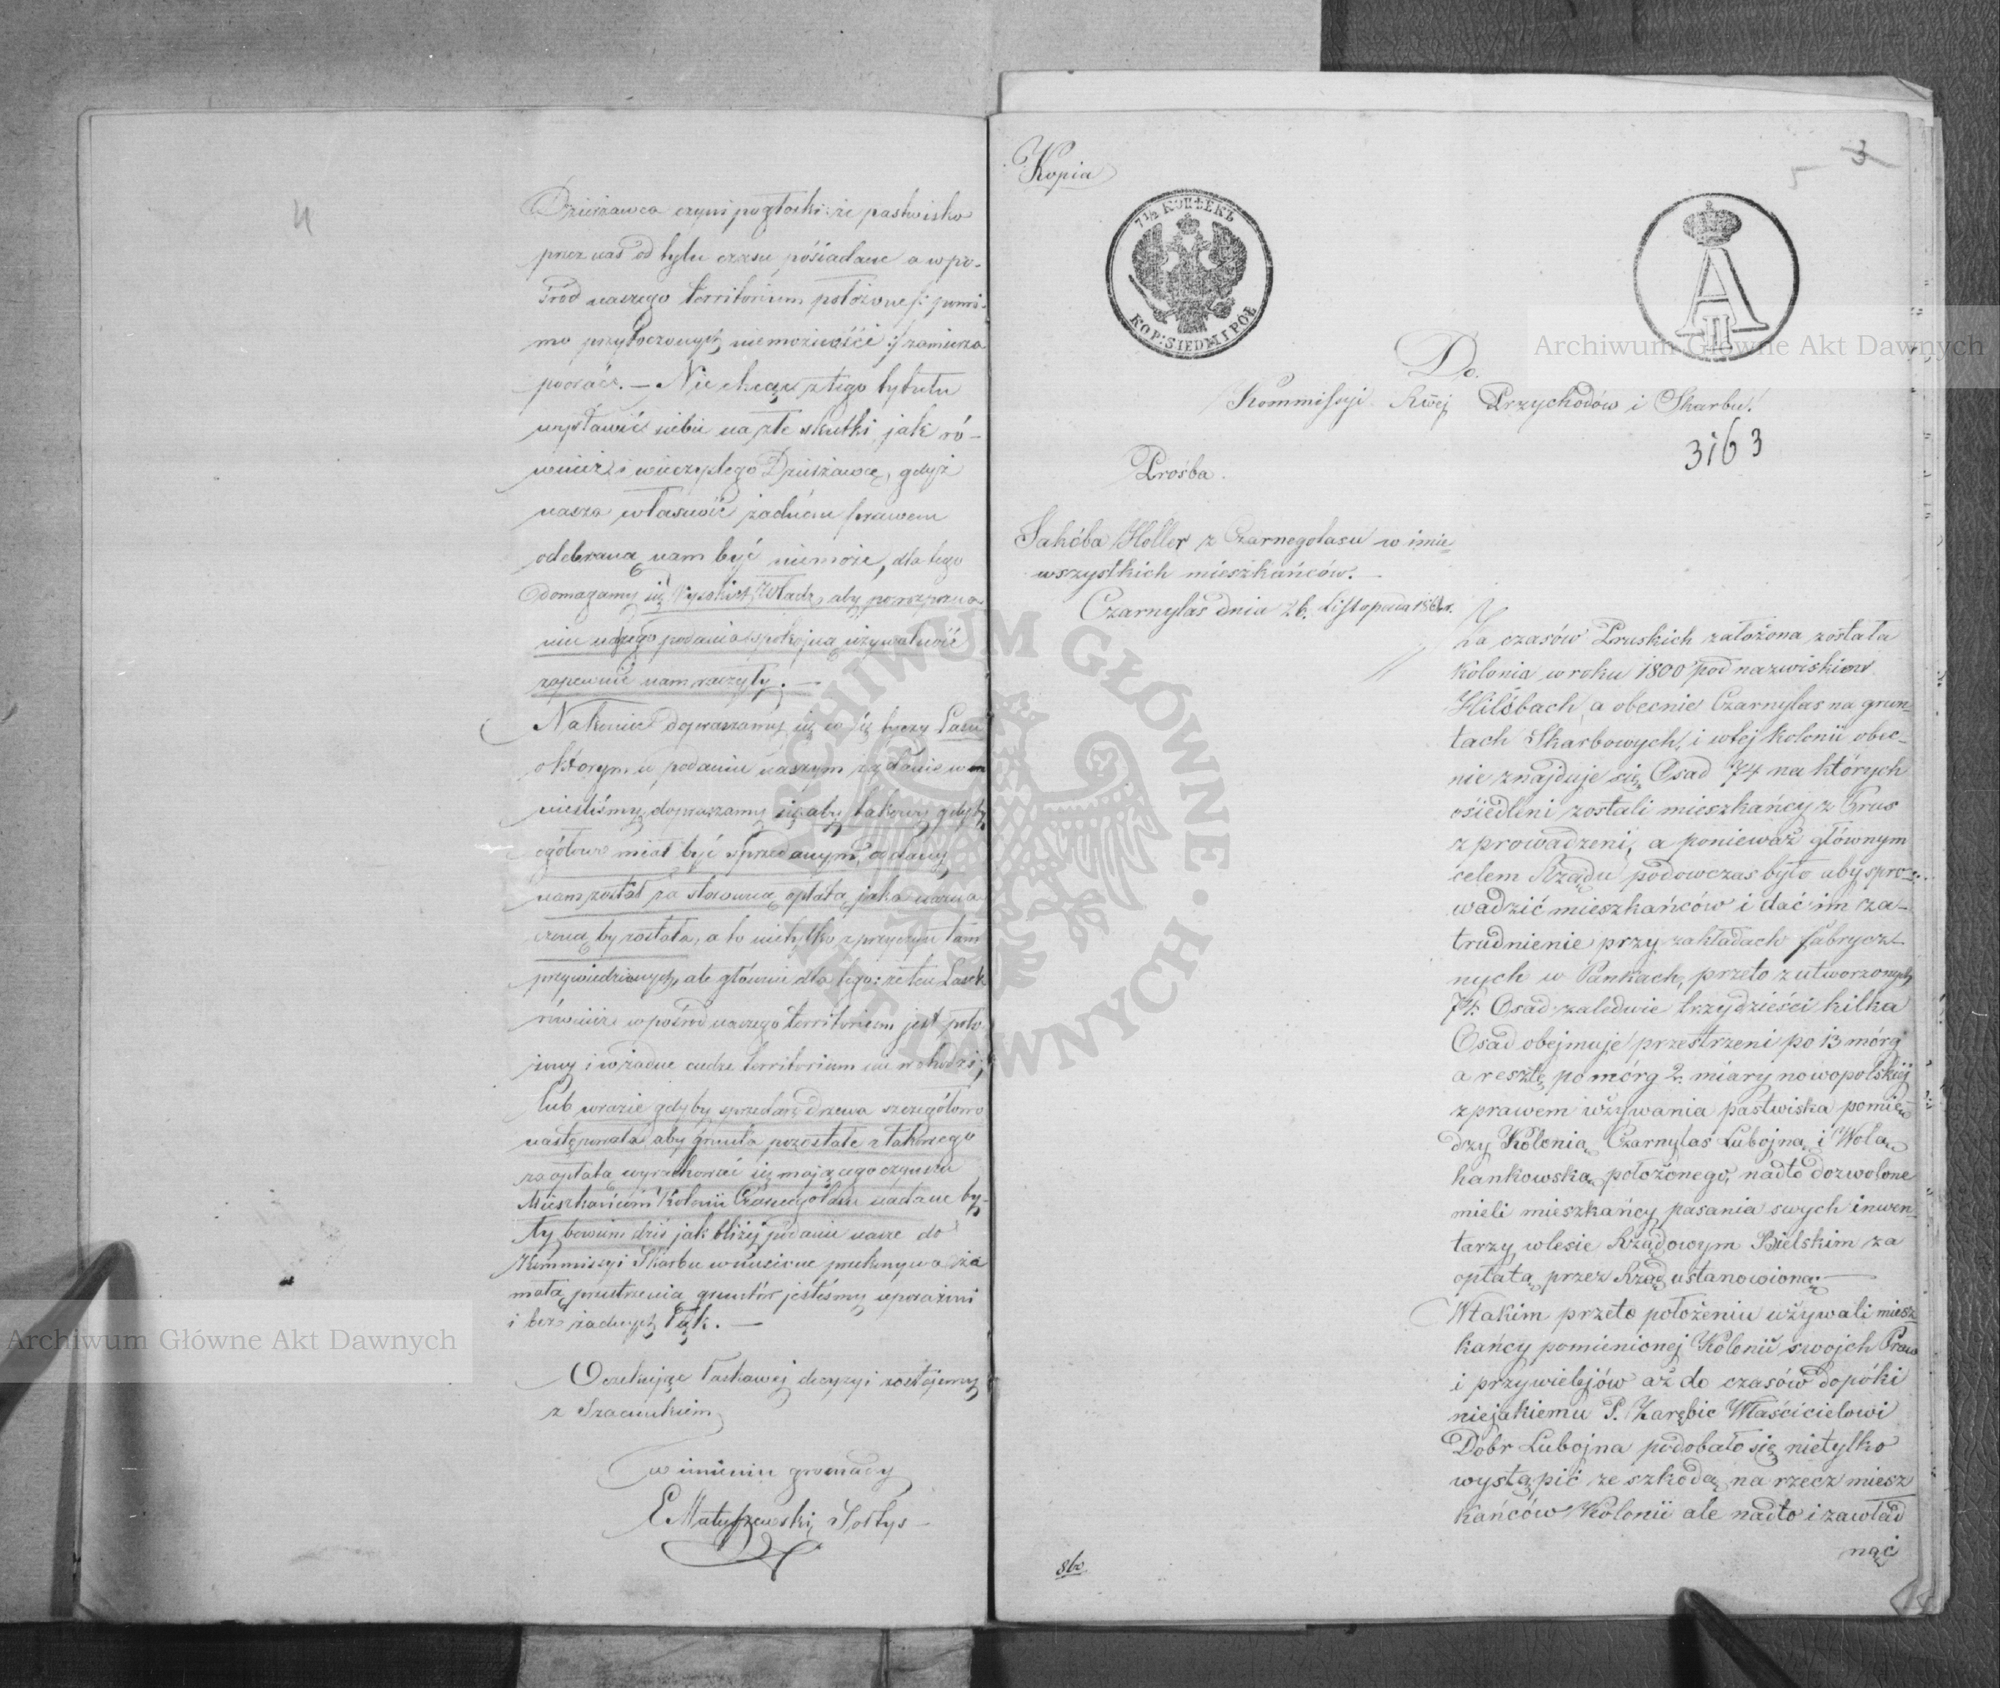 4
Dzierżawca czyni pogłoski: że pastwisko
przez nas od tylu czasu posiadane a w po-
śród naszego territorium położone /: pomi-
mo przytoczonych niemożności :/ zamierza
poorać. — Nie chcąc z tego tytułu
wystawić siebie na złe skutki, jak ró-
wnież i wieczystego Dzierżawcę, gdyż
nasza własność żadnem prawem
odebraną nam być niemoże, dla tego
domagamy się Wysokiej Władz, aby po rozpozna
niu naszego podania spokojną używalność
zapewnić nam raczyły. —
Nakoniec dopraszamy się co się tyczy Lasu
o którym w podaniu naszym żądanie w
nieśliśmy, dopraszamy się aby takowy gdyby
ogółowo miał być sprzedanym, oddany
nam został za stosowną opłatą, jaka ozna
czoną by została, a to nietylko z przyczyn tam
przywiedzionych, ale głównie dla tego: że ten Lasek
również w pośrod naszego territorium jest poło
żony i w żadne cudze territorium nie wchodzi;
lub w razie gdyby sprzedaż drzewa szczegółowo
następowała, aby grunta pozostałe z takowego
za opłatą wyrachować się mającego czynszu
Mieszkańcom Kolonii Czarnegolasu nadane by-
ły, bowiem dziś jak bliżej podanie nasze do
Kommissyi Skarbu wniesione przekonywa, że
małą przestrzenią gruntów jesteśmy uposażeni
i bez żadnych łąk. —
Oczekując łaskawej decyzyi zostajemy
z Szacunkiem
w imieniu gromady
E Matuszewski Sołtys
Kopia
3
5
7½ КОПѢЕКЪ
KOP: SIEDM I PÓŁ
A II
Do
Kommissyi Rzzej Przychodów i Skarbu.
3163
Prośba
Jakóba Holler z Czarnegolasu w imie
wszystkich mieszkańców. —
Czarnylas dnia 26. Listopada 1861 r.
Za czasów Pruskich założona została
kolonia w roku 1800 pod nazwiskiem
Hilsbach, a obecnie Czarnylas na grun-
tach Skarbowych, i w tej kolonii obec-
nie znajduje się Osad 74 na których
osiedleni zostali mieszkańcy z Prus
zprowadzeni, a ponieważ głównym
celem Rządu podówczas było aby spro-
wadzić mieszkańców i dać im za-
trudnienie przy zakładach fabrycz-
nych w Pankach, przeto z utworzonych
74. Osad zaledwie trzydzieści kilka
Osad obejmuje przestrzeni po 13 mórg
a resztę po mórg 2. miary nowopolskiej
z prawem używania pastwiska pomię-
dzy Kolonią Czarnylas Lubojną i Wolą
hankowską położonego, nadto dozwolone
mieli mieszkańcy pasania swych inwen-
tarzy w lesie Rządowym Bielskim za
opłatą przez Rząd ustanowioną. —
W takim przeto położeniu używali miesz
kańcy pomienionej Kolonii swojch Praw
i przywielejów aż do czasów dopóki
niejakiemu P. Zarębie Właścicielowi
Dóbr Lubojna podobało się nietylko
wystąpić ze szkodą na rzecz miesz
kańców Kolonii ale nadto i zawład
nąć
Archiwum Główne Akt Dawnych
Archiwum Główne Akt Dawnych
ARCHIWUM GŁÓWNE AKT DAWNYCH